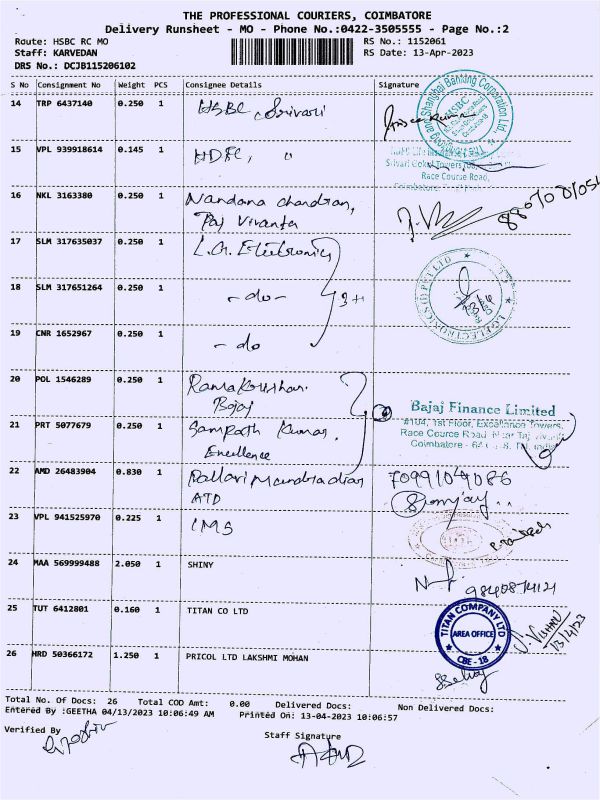 THE PROFESSIONAL COURIERS, COIMBATORE
Delivery Runsheet - MO - Phone No.:0422-3505555 - Page No.:2
Route: HSBC RC MO
RS No.: 1152061
Staff: KARVEDAN
RS Date: 13-Apr-2023
DRS No.: DCJB115206102
S No Consignment No Weight PCS Consignee Details Signature
14 TRP 6437140 0.250 1 HSBC, Srivari
15 VPL 939918614 0.145 1 HDFC, "
16 NKL 3163380 0.250 1 Nandana Chandran,
Taj Vivanta
17 SLM 317635037 0.250 1 L.G. Electronics
18 SLM 317651264 0.250 1 - do -
19 CNR 1652967 0.250 1 - do
20 POL 1546289 0.250 1 Ramakrushan.
Bajaj
Bajaj Finance Limited
#104, 1st Floor, Excellance Towers,
Race Course Road, Near Taj Vivanta
Coimbatore
21 PRT 5077679 0.250 1 Sampath Kumar,
Excellence
22 AMD 26483904 0.830 1 Pallavi
ATD
7099104086
Sanjay
23 VPL 941525970 0.225 1 IMS
24 MAA 569999488 2.050 1 SHINY
9840874121
25 TUT 6412801 0.160 1 TITAN CO LTD
TITAN COMPANY LTD
AREA OFFICE
CBE - 18
13/4/23
26 HRD 50366172 1.250 1 PRICOL LTD LAKSHMI MOHAN
Total No. Of Docs: 26 Total COD Amt: 0.00 Delivered Docs: Non Delivered Docs:
Entered By :GEETHA 04/13/2023 10:06:49 AM Printed On: 13-04-2023 10:06:57
Verified By
Staff Signature